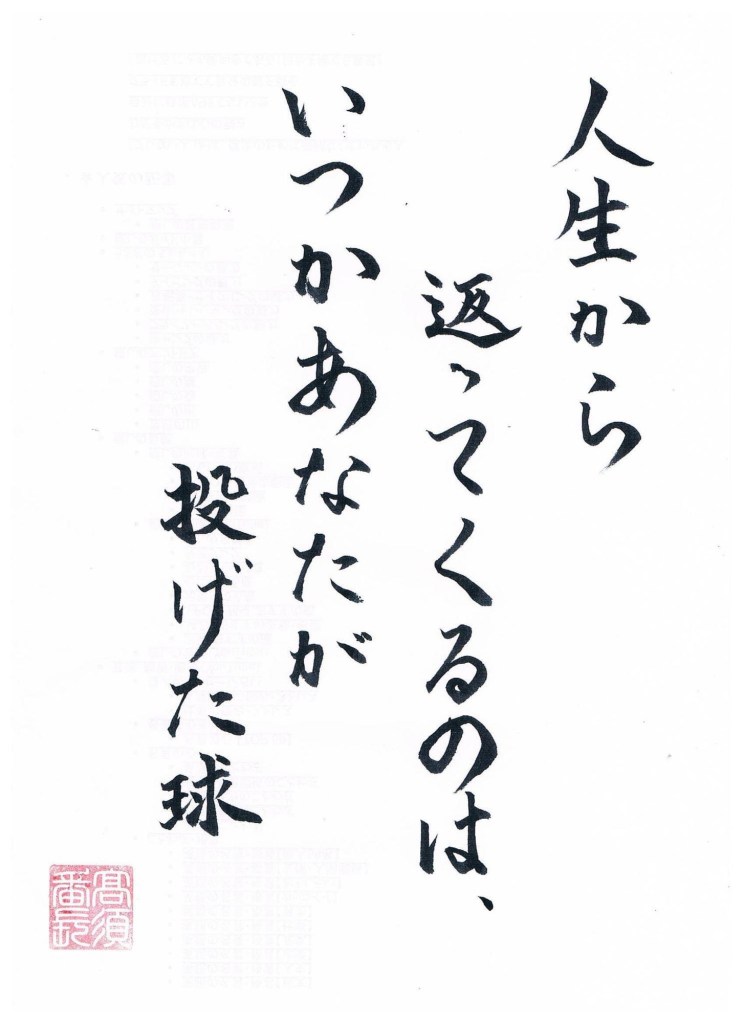 人生から
返ってくるのは、
いつかあなたが
投げた球
高須
番長